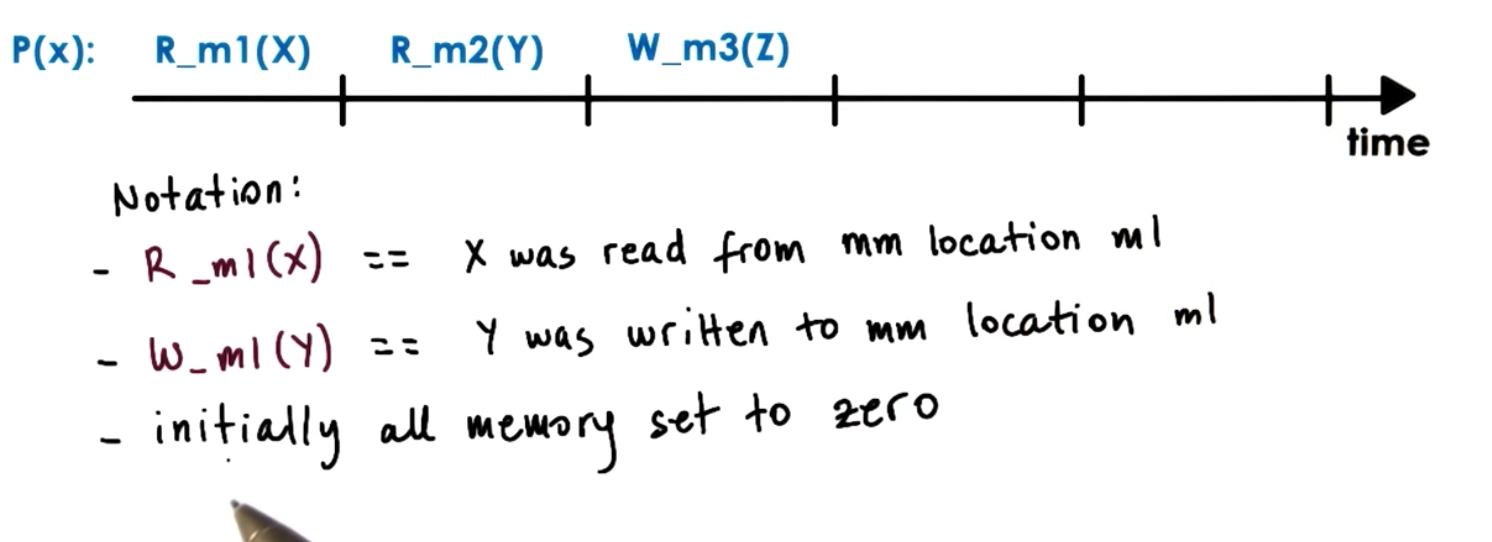 P(x): R_m1(X) R_m2(Y) W_m3(Z)
time
Notation:
- R_m1(X) == X was read from mm location m1
- W_m1(Y) == Y was written to mm location m1
- initially all memory set to zero